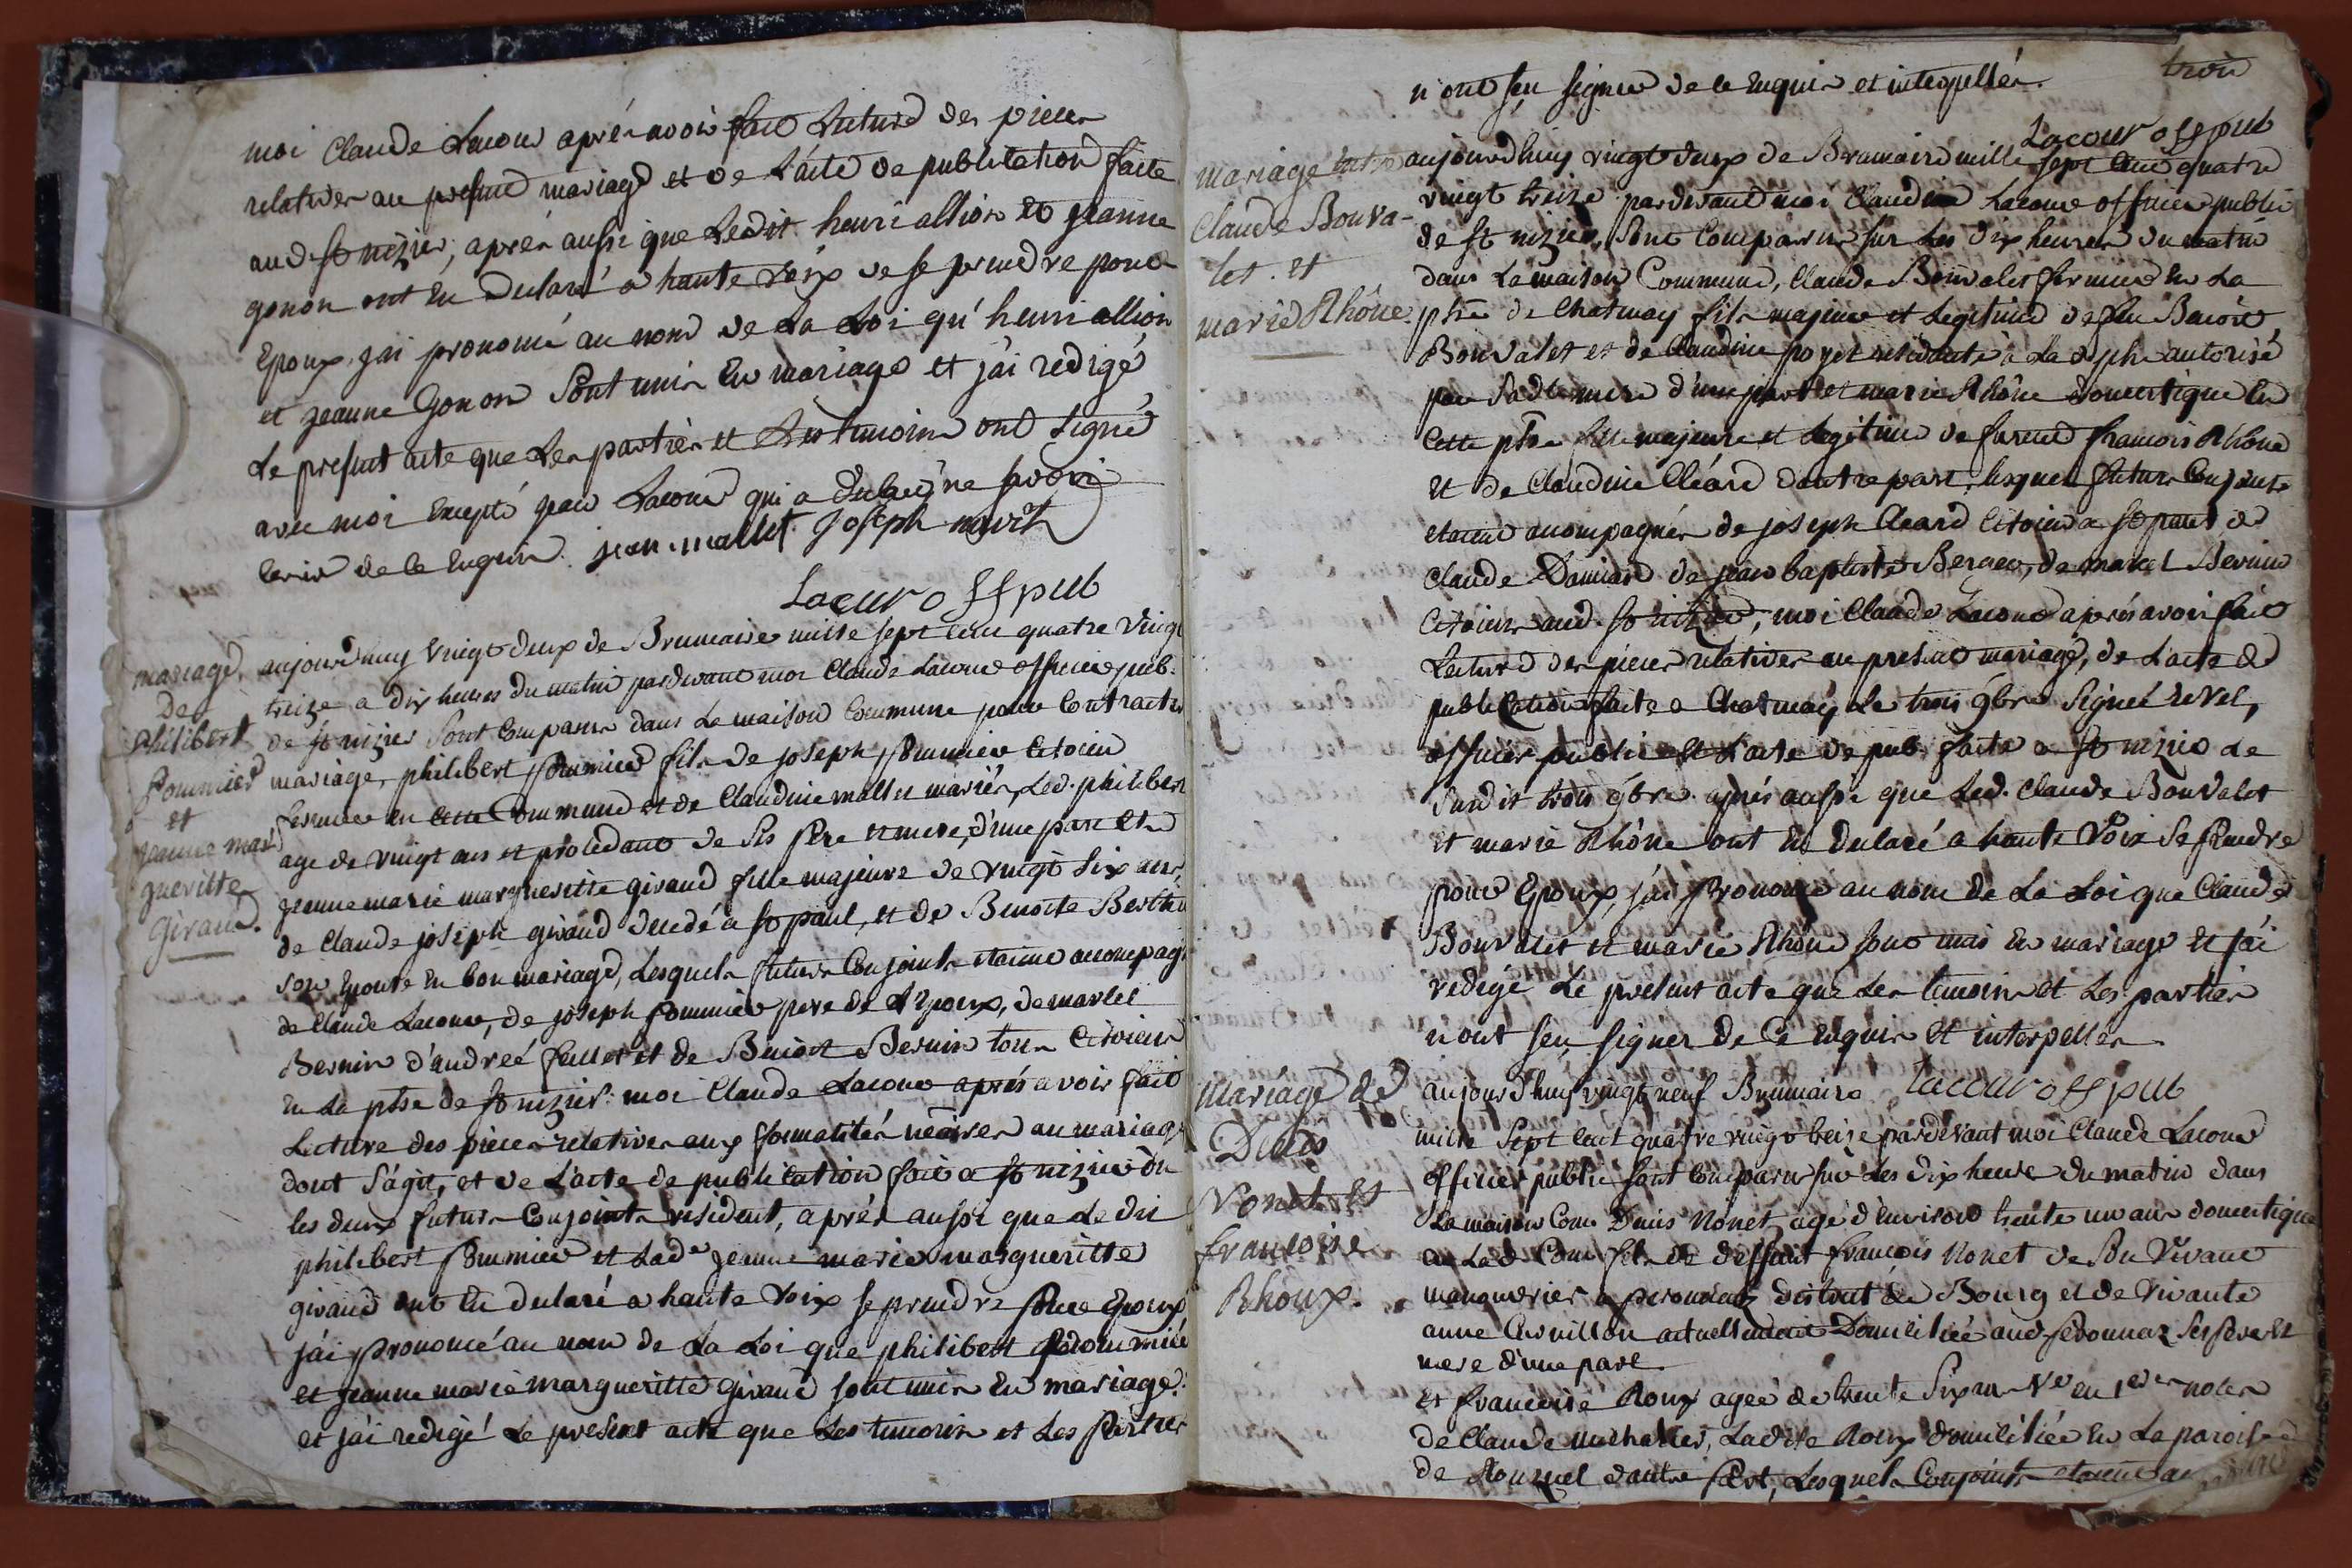 moi Claude Lacour aprés avoir fait Lecture des pieces
relatives au present mariage et de L'acte de publication faite
aud. St nizier, aprés aussi que Ledit henri allion et jeanne
gonon ont Eu declaré a haute voix de se prendre pour
Epoux, jai prononcé au nom de La Loi qu'henri allion
et jeanne Gonon Sont unis En mariage et j'ai redigé
Le present acte que Les parties et Les temoins ont Signé
avec moi Excepté jean Lacour qui a declaré ne savoir
de ce Enquis. jean mallet joseph
Lacour off pub
mariage
De
Philibert
Pommier
et
jeanne mar
gueritte
Giraud.
aujourdhuy vingt deux de Brumaire mille sept cent quatre vingt
treize a dix heures du matin pardevant moi Claude Lacour officier pub.
de St nizier Sont Comparus dans La maison Commune pour Contracter
mariage, philibert pommier fils de joseph pommier Citoien
fermier en Cette Commune et de Claudine mallet mariés, Led. philibert
age de vingt ans et procedant de Ses pere et mere, d'une part et
jeanne marie margueritte giraud fille majeure de vingt six ans,
de Claude joseph giraud decedé a St paul, et de Benoite
son Epouse En bon mariage, Lesquels futurs Conjoints etaient accompag
de Claude Lacour, de joseph pommier pere de L'Epoux, de marcel
Bernin d'andreé fellet et de Benoit Bernin tous Citoiens
En La psse de St nizier. moi Claude Lacour aprés avoir fait
Lecture des pieces relatives aux formalités néaires au mariage
dont S'agit, et de L'acte de publication fait a St nizier ou
les deux futurs Conjoints resident, aprés aussi que Le dit
philibert pommier et Lade jeanne marie margueritte
giraud ont Eu declaré a haute voix se prendre pour Epoux
j'ai prononcé au nom de La Loi que philibert pommier
et jeanne marie margueritte Giraud sont unis En mariage.
et j'ai redigé Le present acte que Les temoins et Les parties
trois
n'ont seu signer de ce Enquis et interpellés.
Lacour off pub
mariage entre
Claude Bouva-
let et
marie Rhône.
aujourdhuy vingt deux de Brumaire mille sept cent quatre
vingt treize pardevant moi Claude Lacour officier public
de St nizier, Sont Comparus sur Les dix heures du matin
dans La maison Commune, Claude Bouvalet fermier En La
psse de Chatenay fils majeur et Legitime de feu Benoit
Bouvalet et de Claudine poyet residente a La d. psse autorisé
par Sadte mere d'une part et marie Rhône domestique En
Cette psse fille majeure et Legitime de furent francois Rhône
et de Claudine Cléard d'autre part, lesquels futurs Conjoints
etaient accompagnés de joseph Cleard Citoien a St paul de
Claude Damians de jean baptiste Berger, de marcel Bernin
Citoiens aud. St nizier, moi Claude Lacour aprés avoir fait
Lecture des pieces relatives au present mariage, de L'acte de
publication faite a Chatenay Le trois 9bre Signeé revel,
officier public et L'acte de pub. faite a St nizier Le
Susdit trois 9bre aprés aussi que Led. Claude Bouvalet
et marie Rhône ont Eu declaré a haute Voix Se prendre
pour Epoux, j'ai prononcé au nom de La Loi que Claude
Bouvalet et marie Rhône sont unis En mariage et j'ai
redigé Le present acte que Les temoins et Les parties
n'ont seu signer de Ce Enquis et interpellés.
Lacour off pub
Mariage de
Denis
Vonet Et
francoise
Rhoux.
aujourd'huy vingt neuf Brumaire
mille Sept Cent quatre vingt treize pardevant moi Claude Lacour
officier public sont Comparus sur Les dix heure du matin dans
La maison Com. Denis Nonet, agé d'Environ trente un ans domestique
en Lad. Com. fils de deffunt francois Nonet de Son Vivant
manouvrier a peronnaz district de Bourg et de Vivante
anne actuellement Domiciliée aud. peronnaz Ses pere et
mere d'une part.
et francoise Roux agée de trente Six ans Ve en 1eres noces
de Claude michalier, Ladite Roux domiciliée En La paroisse
de d'autre part, Lesquels Conjoints etaient